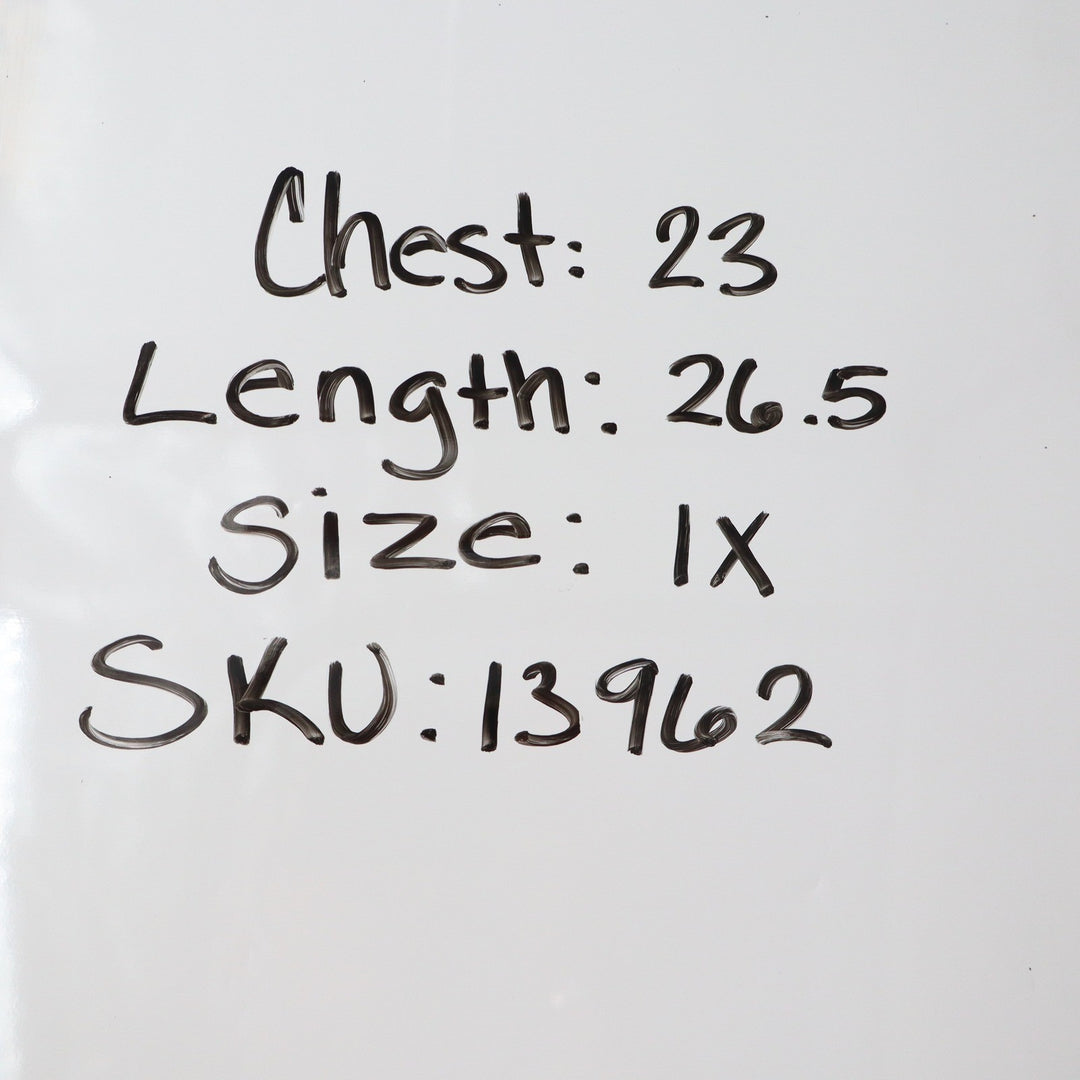 Chest: 23
Length: 26.5
Size: 1X
SKU: 13962